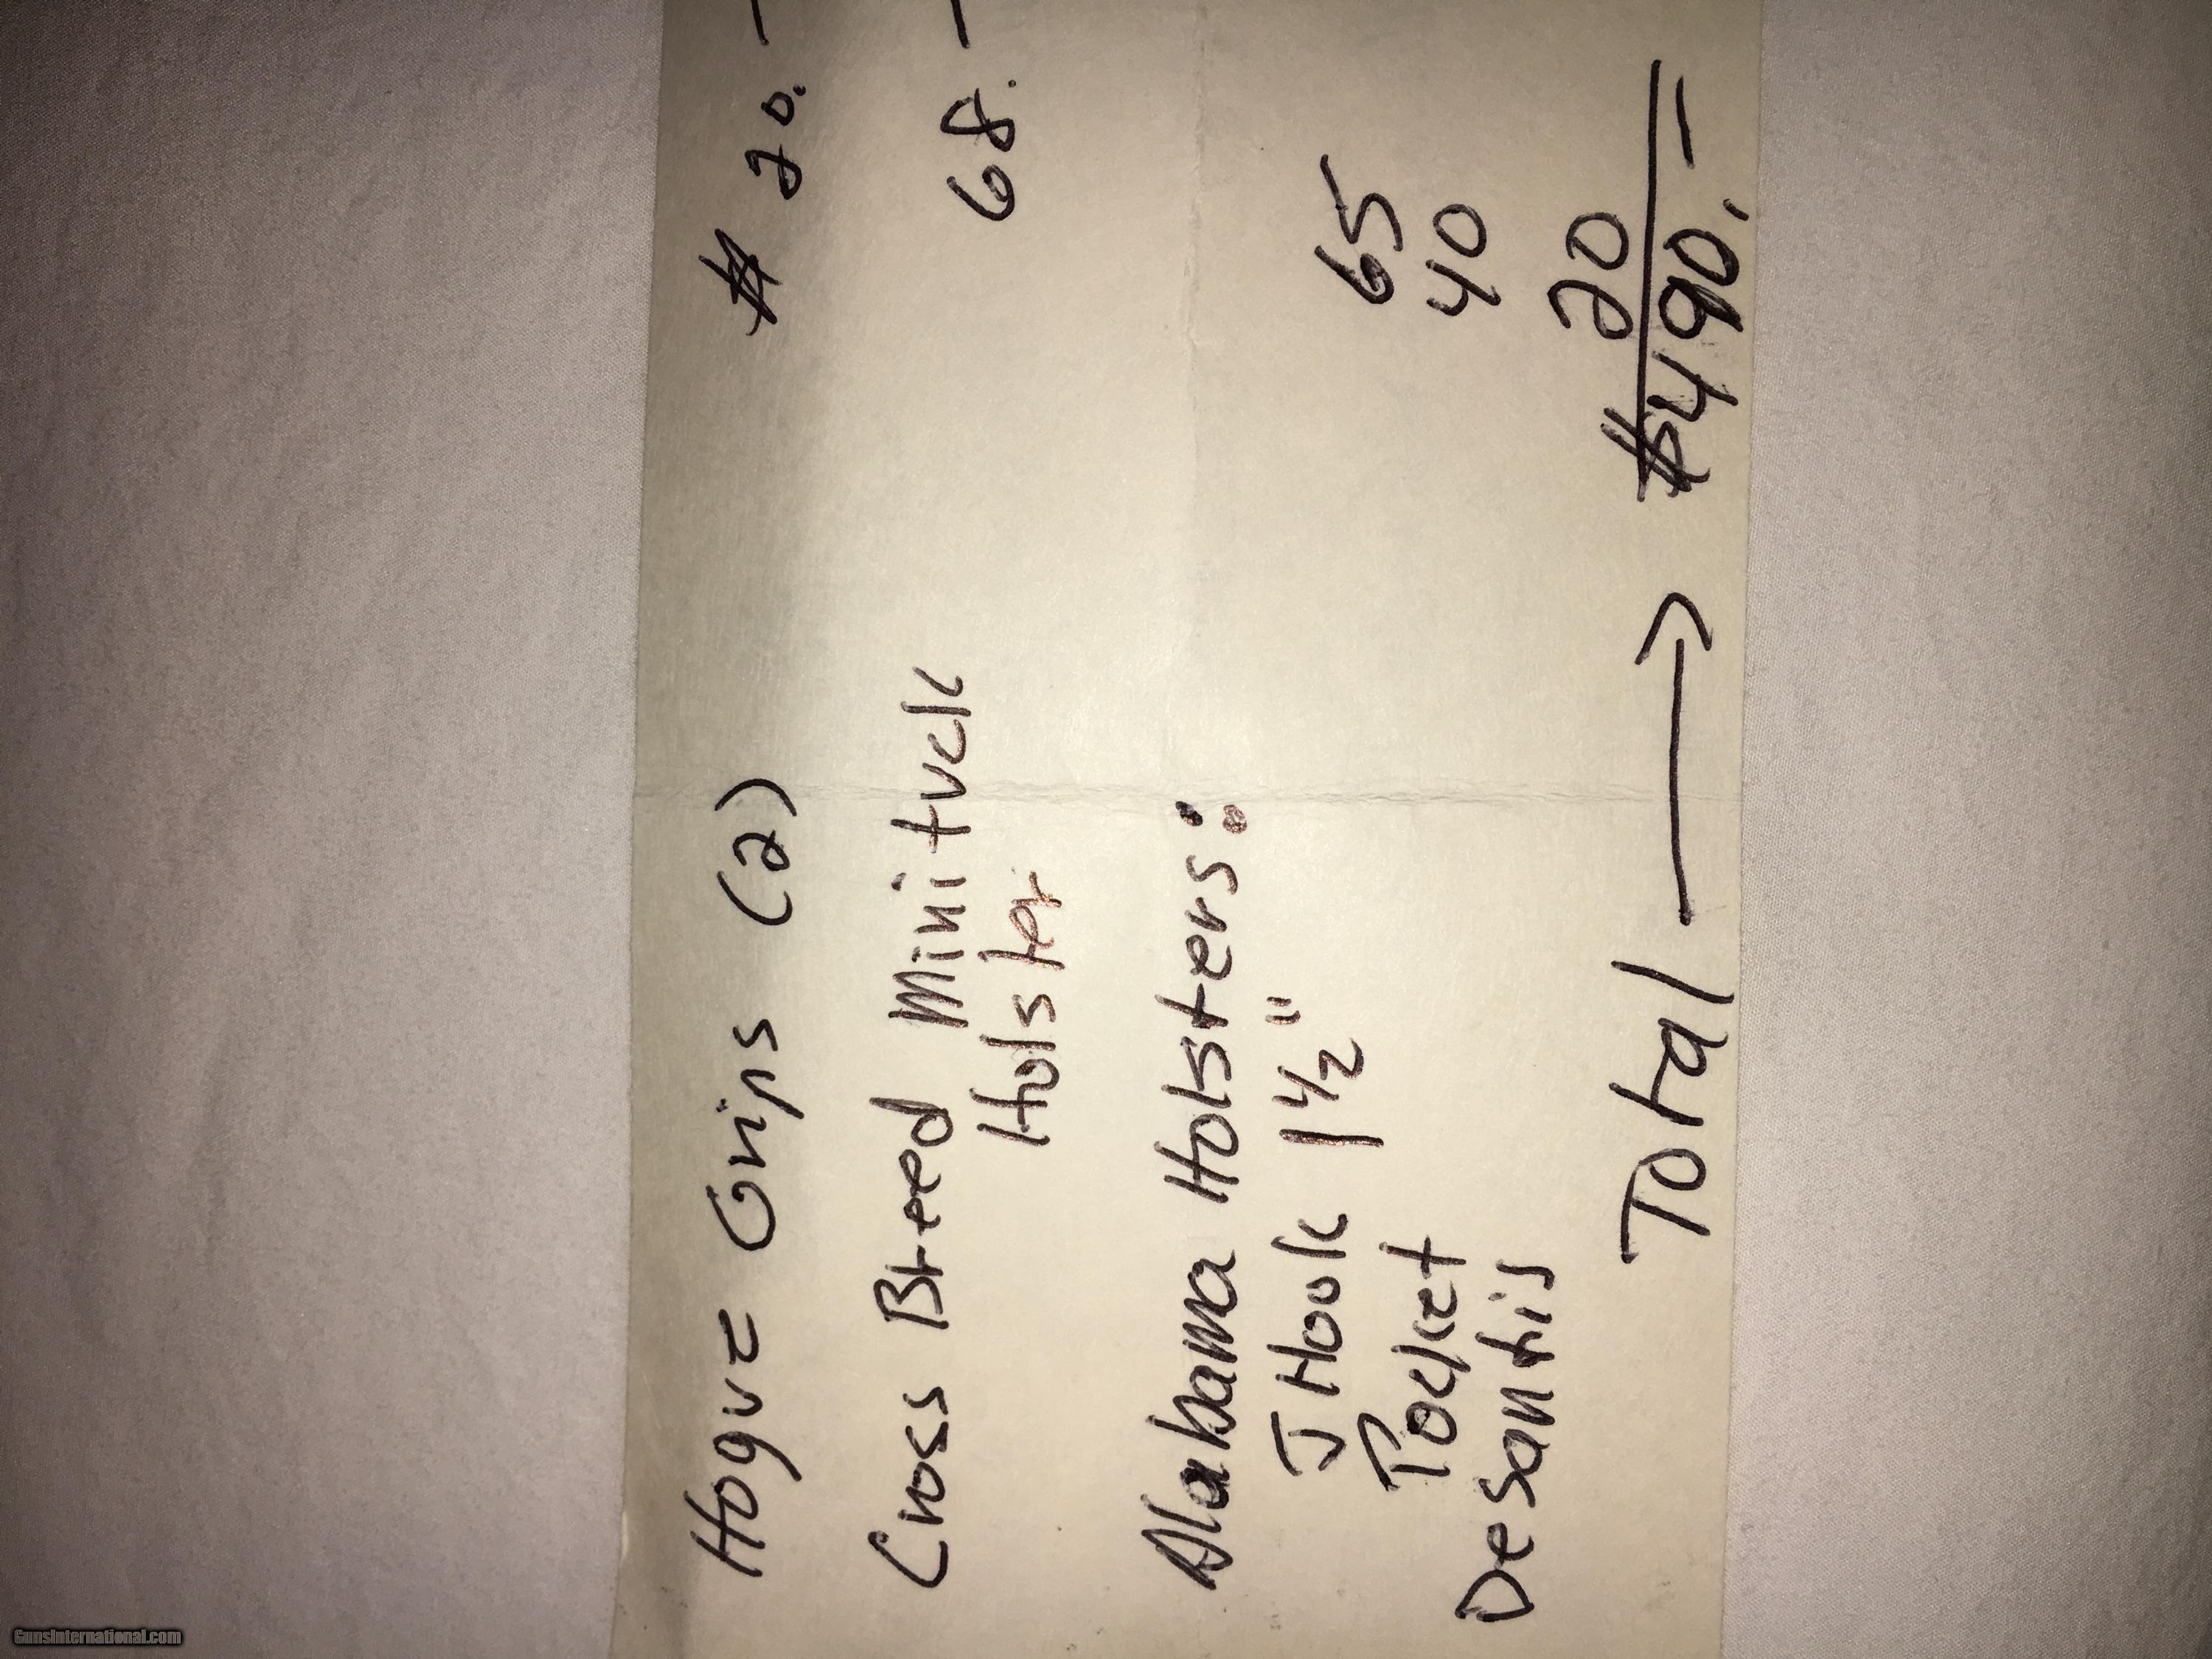 Hogue Grips (2) $ 20.—
Cross Breed Minituck 68.—
Holster
Alabama Holsters:
J Hook 1 1/2" 65
Pocket 40
Desantis 20
Total → $490.—
GunsInternational.com